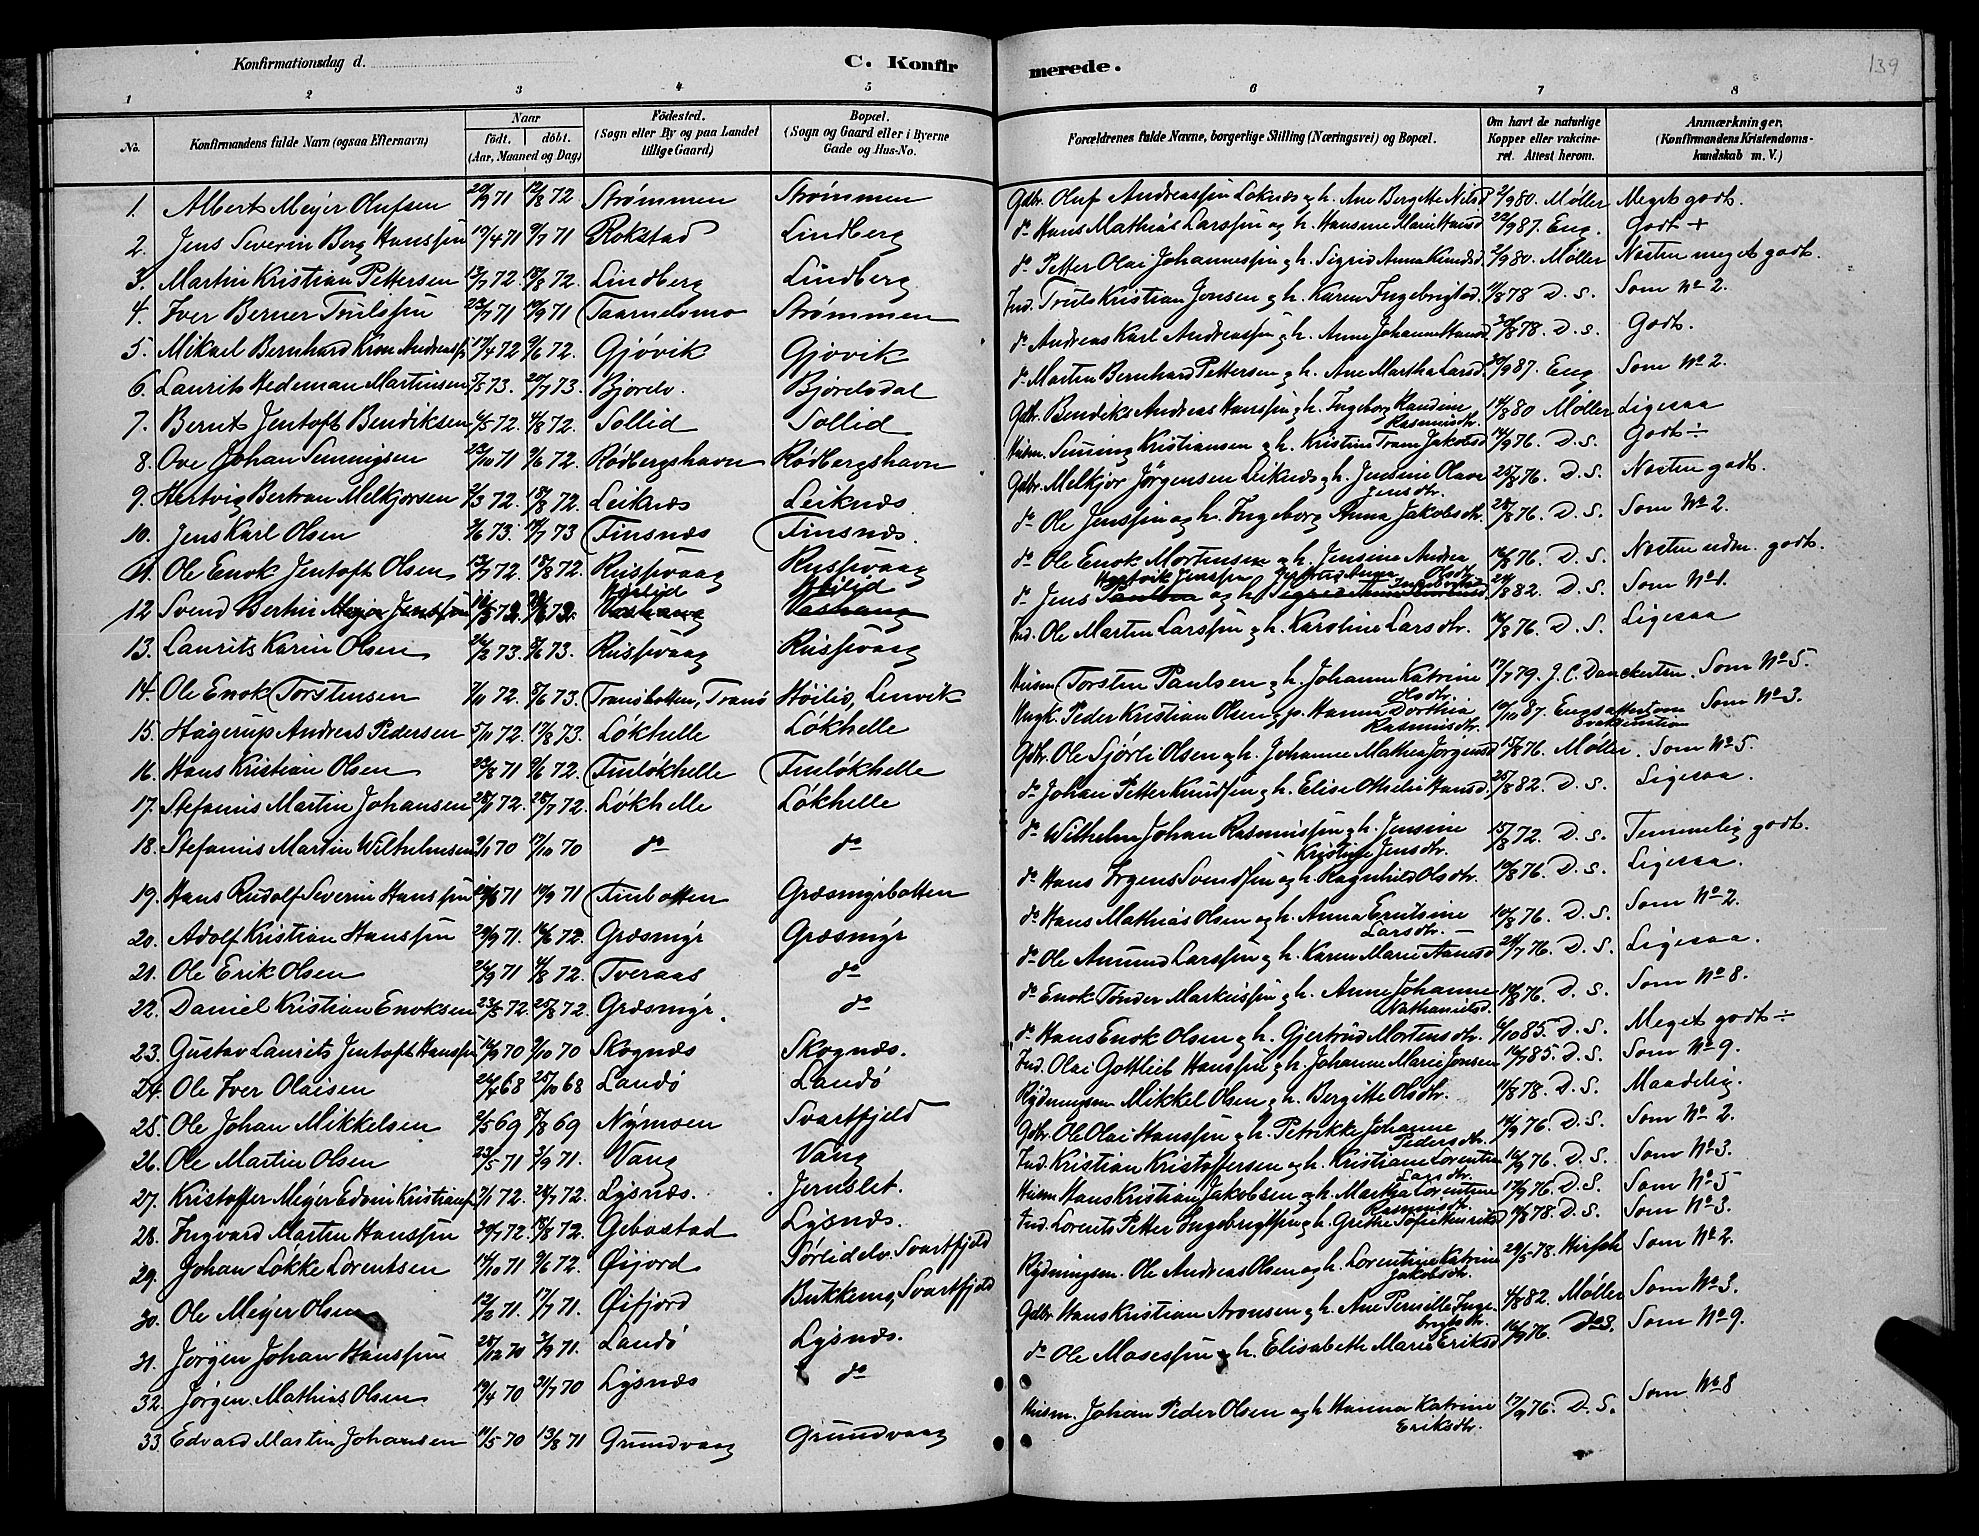 Konfirmationsdag d.
C. Konfir
merede.
139
1 2 3 4 5 6 7 8
No.
Konfirmandens fulde Navn (ogsaa Efternavn)
Naar
født. døbt.
(Aar, Maaned og Dag)
Fødested.
(Sogn eller By og paa Landet
tillige Gaard)
Bopæl.
(Sogn og Gaard eller i Byerne
Gade og Hus-No.
Forældrenes fulde Navne, borgerlige Stilling (Næringsvei) og Bopæl.
Om havt de naturlige
Kopper eller vakcine-
ret. Attest herom.
Anmærkninger,
(Konfirmandens Kristendoms-
kundskab m. V.)
1. Albert Meyer Olufsen 20/9 71 12/8 72 Strømmen Strømmen Gdbr. Oluf Andreassen Løknæs og h. Ane Bergitte Nilsd 2/9 80. Møller Meget godt.
2. Jens Severin Berg Hanssen 19/4 71 9/7 71 Rokstad Lindberg do Hans Mathias Larssen og h. Hansine Marie Hansd 22/9 87. Eng. Godt +
3. Martin Kristian Pettersen 13/7 72. 18/8 72. Lindberg Lindberg do Petter Olai Johannessen og h. Sigrid Anna Knudsd. 2/9 80. Møller Næsten meget godt.
4. Iver Berner Trulssen 23/7 71 17/9 71 Taarnelvmo Strømmen Ind. Truls Kristian Jensen og h. Karen Ingebrigtsd. 11/8 78 D. S. Som No 2.
5. Mikael Bernhard Kron Andreass 17/4 72 9/6 72. Gjövik Gjövik do Andreas Karl Andreassen og h. Anne Johanne Hansd 30/8 78. D. S. Godt.
6. Laurits Hedeman Martinsen 5/5 73. 20/7 73. Bjørelv. Bjørelvdal do Martin Bernhard Pettersen og h. Ane Martha Larsd. 30/9 87. Eng Som No 2.
7. Bernt Jentoft Bendiksen 4/5 72. 4/8 72. Sollid Sollid Gdbr. Bendiks Andreas Hanssen og h. Ingeborg Randine Rasmusdtr. 14/8 80 Møller Ligesaa
8. Ove Johan Senningsen 23/10 71 9/6 72. Rødbergshavn Rødbergshavn Husm. Senning Kristiansen og h. Kristine Trane Jakobsd 14/9 76. D. S. Godt ÷
9. Hertvig Bertran Melkjorsen 2/3 72. 18/8 72. Leiknæs Leiknæs. Gdbr. Melkjor Jörgensen Leiknæs og h. Jensine Olava Jensdtr. 25/8 76. D. S. Næsten godt.
10. Jens Karl Olsen 2/6 73. 17/7 73 Finsnæs Finsnæs. do Ole Jenssen og h. Ingeborg Anna Jakobsdtr. 25/8 76. D. S. Som No 2.
11. Ole Enok Jentoft Olsen 13/7 72. 18/8 72. Russevaag Russevaag do Ole Enok Mortensen og h. Jensine Andrea Olsdtr. 16/8 76. D. S. Næsten udm. godt.
12 Svend Bertin Meyer Jenssen Høilid Høilid do Jens Hartvik Jenssen og h. 24/8 82. D. S. Som No 1.
13. Laurits Karin Olsen 26/2 73. 8/6 73. Russevaag Russevaag Ind. Ole Martin Larssen og h. Karoline Larsdtr. 16/8 76. D. S. Ligesaa
14. Ole Enok Torstensen 7/11 72. 8/6 73. Transbotten, Tranö Høilid, Lenvik Husm Torsten Paulsen og h. Johanne Katrine Olsdtr. 17/7 79. J. C. Danckertsen. Som No 5.
15. Hagerup Andreas Pedersen 5/10 72. 17/8 73. Løkhelle Løkhelle Ungk. Peder Kristian Olsen og p. Hanna Dorthea Rasmusdtr. 19/10 87. Engs attest om Vakcination Som No 3.
16. Hans Kristian Olsen 23/8 71 9/6 72. Finløkhelle Finløkhelle Gdbr. Ole Sjörle Olsen og h. Johanne Mathea Jörgensd 15/8 76. Møller. Som No 5.
17. Stefanus Martin Johansen 28/1 72. 28/7 72. Løkhelle Løkhelle do Johan Petter Knudsen og h. Elise Ottelie Hansd. 25/8 82. D. S. Ligesaa.
18. Stefanus Martin Wilhelmsen 2/1 70 17/10 70 do do do Wilhelm Johan Rasmussen og h. Jensine Kristine Jensdtr. 15/8 72. D. S. Temmelig godt.
19. Hans Rudolf Severin Hanssen 17/9 71 Finbotten Græsmyrbotten do Hans Jrgens Svendsen og h. Ragnhild Olsdtr. 19/8 76. D. S. Ligesaa.
20. Adolf Kristian Hanssen 29/9 71. 16/6 72. Græsmyr Græsmyr do Hans Mathias Olsen og h. Anna Erntsine Larsdtr. 19/8 76. D. S. Som No 2.
21. Ole Erik Olsen 24/9 71 4/8 72. Tveraas do do Ole Amund Larssen og h. Karen Marie Aanesd 24/7 76. D. S. Ligesaa.
22. Daniel Kristian Enoksen 23/5 72. 25/8 72. Græsmyr. do do Enok Tönder Markussen og h. Anne Johanne Nathanielsd. 19/8 76. D. S. Som No 8.
23. Gustav Laurits Jentoft Hanssen 16/9 70 9/10 70 Skognæs Skognæs. do Hans Enok Olsen og h. Gjertrud Mortensdtr. 4/10 85. D. S. Meget godt ÷
24. Ole Iver Olaisen 26/4 68 25/10 68 Landö Landö Ind. Olai Gottlieb Hanssen og h. Johanne Marie Jensen 16/7 85. D. S. Som No 9.
25. Ole Johan Mikkelsen 2/5 69 8/8 69 Nymoen Svartfjeld Rydningsm Mikkel Olsen og h. Bergitte Olsdtr. 11/8 78. D. S. Maadelig.
26. Ole Martin Olsen 23/5 71 3/9 71. Vang Vang Gdbr. Ole Olai Hanssen og h. Petrikke Johanne Pedersdtr. 14/9 76. D. S. Som No 2.
27. Kristoffer Meyer Edvin Kristians 7/1 72. 28/7 72. Lysnæs. Jernslet. Ind. Kristian Kristoffersen og h. Kristiane Lorentine Larsdtr. 16/9 76. D. S. Som No 3.
28. Ingvard Martin Hanssen 30/7 72. 18/8 72. Gebostad Lysnæs. Husm Hans Kristian Jakobsen og h. Martha Lorentine Rasmusdtr. 17/9 76. D. S. Som No 5
29. Johan Løkke Lorentsen 14/10 71 9/6 72. Øijord Sørlidelv. Svartfjeld Ind. Lorents Petter Ingebrigtsen og h. Grethe Sofie Henriksd 18/8 78. D. S. Som No 3.
30. Ole Meyer Olsen 12/2 71. 17/7 71. Øifjord Bukkemo, Svartfjeld Rydningsm. Ole Andreas Olsen og h. Lorentine Katrine Jakobsdtr. 29/5 78. Hirsch Som No 2.
31. Jørgen Johan Hanssen 28/12 70 3/9 71. Landö Lysnæs. Gdbr. Hans Kristian Aronsen og h. Ane Pernille Ingebrigtsdtr. 4/8 82. Møller Som No 3.
32. Jørgen Mathias Olsen 19/4 70 31/7 70 Lysnæs do do Ole Mosessen og h. Elisabeth Marie Eriksd 16/9 76. do S. Som No 9.
33 Edvard Martin Johansen 11/5 70 13/8 71 Grundvaag Grundvaag Husm. Johan Peder Olsen og h Hanna Katrine Eriksdtr. 17/9 76. D. S. Som No 8